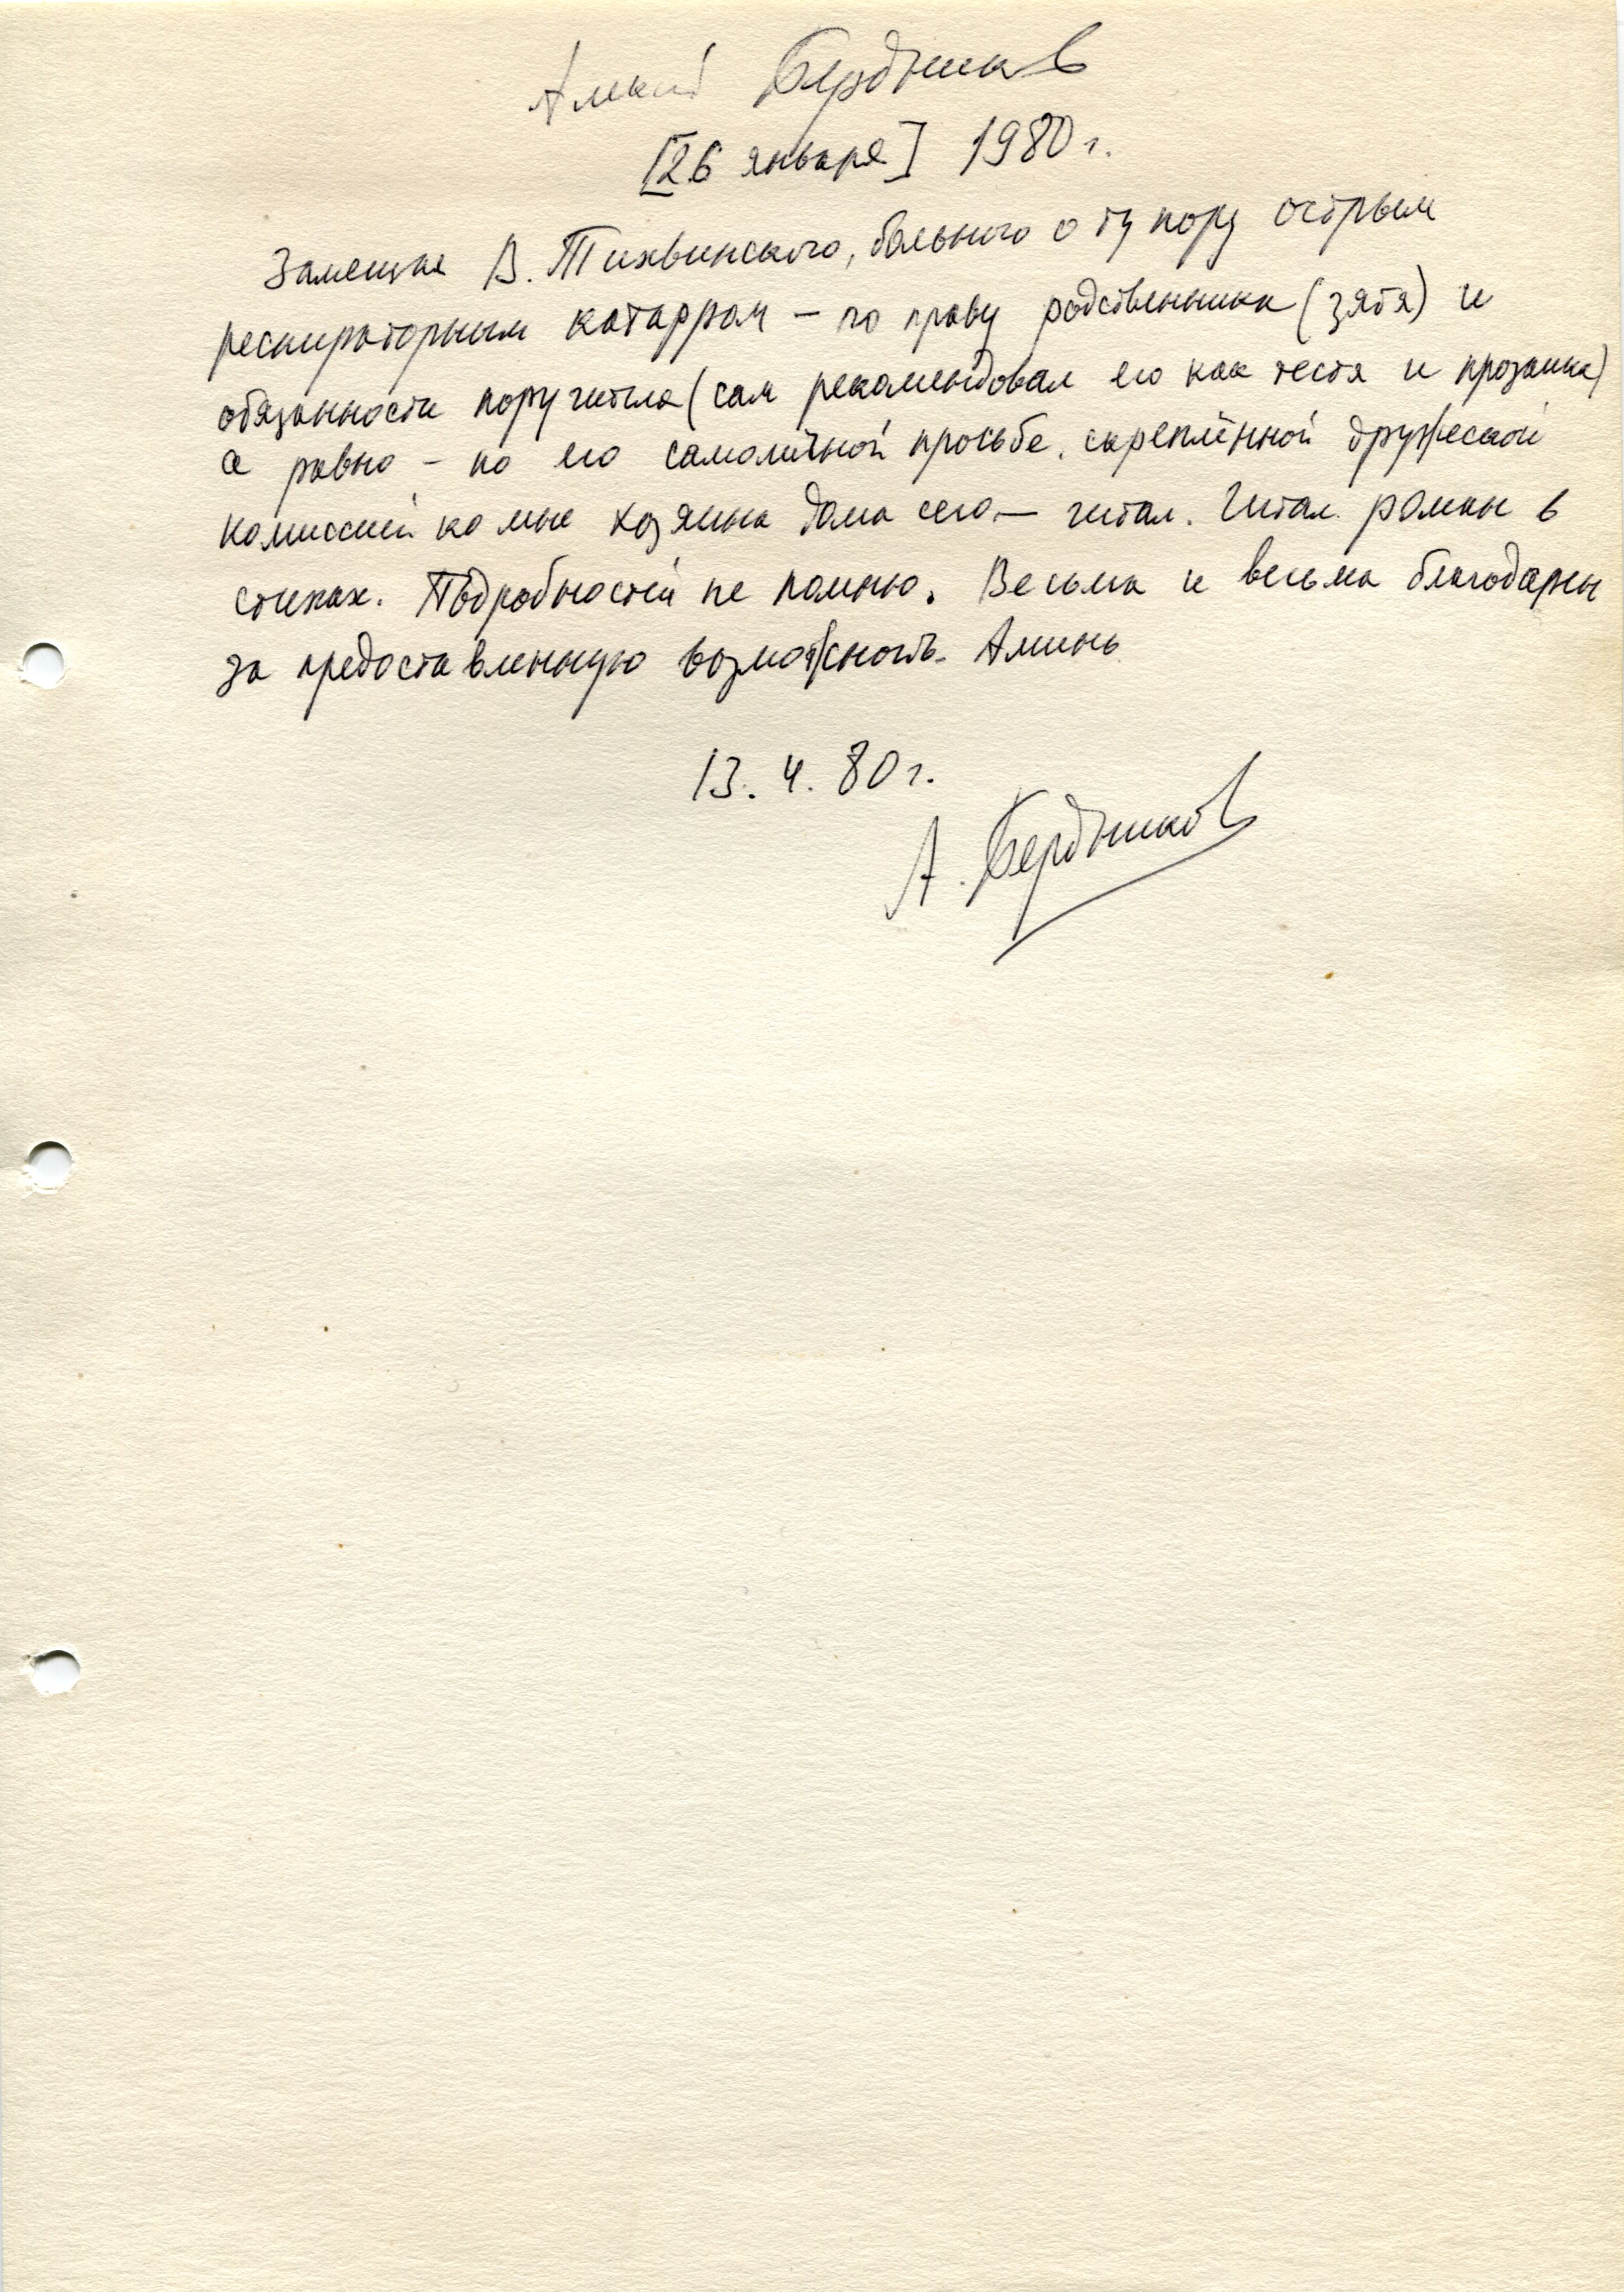 Алексей Бердников
[26 января] 1980 г.
Замещая В. Тихвинского, больного о ту пору острым
респираторным катарром – по праву родственника (зятя) и
обязанности поручителя (сам рекомендовал его как тестя и прозаика)
а равно – по его самоличной просьбе, скреплённой дружеской
комиссией ко мне хозяина дома сего, – читал. Читал романы в
стихах. Подробностей не помню. Весьма и весьма благодарны
за предоставленную возможность. Аминь
13. 4. 80 г.
А. Бердников